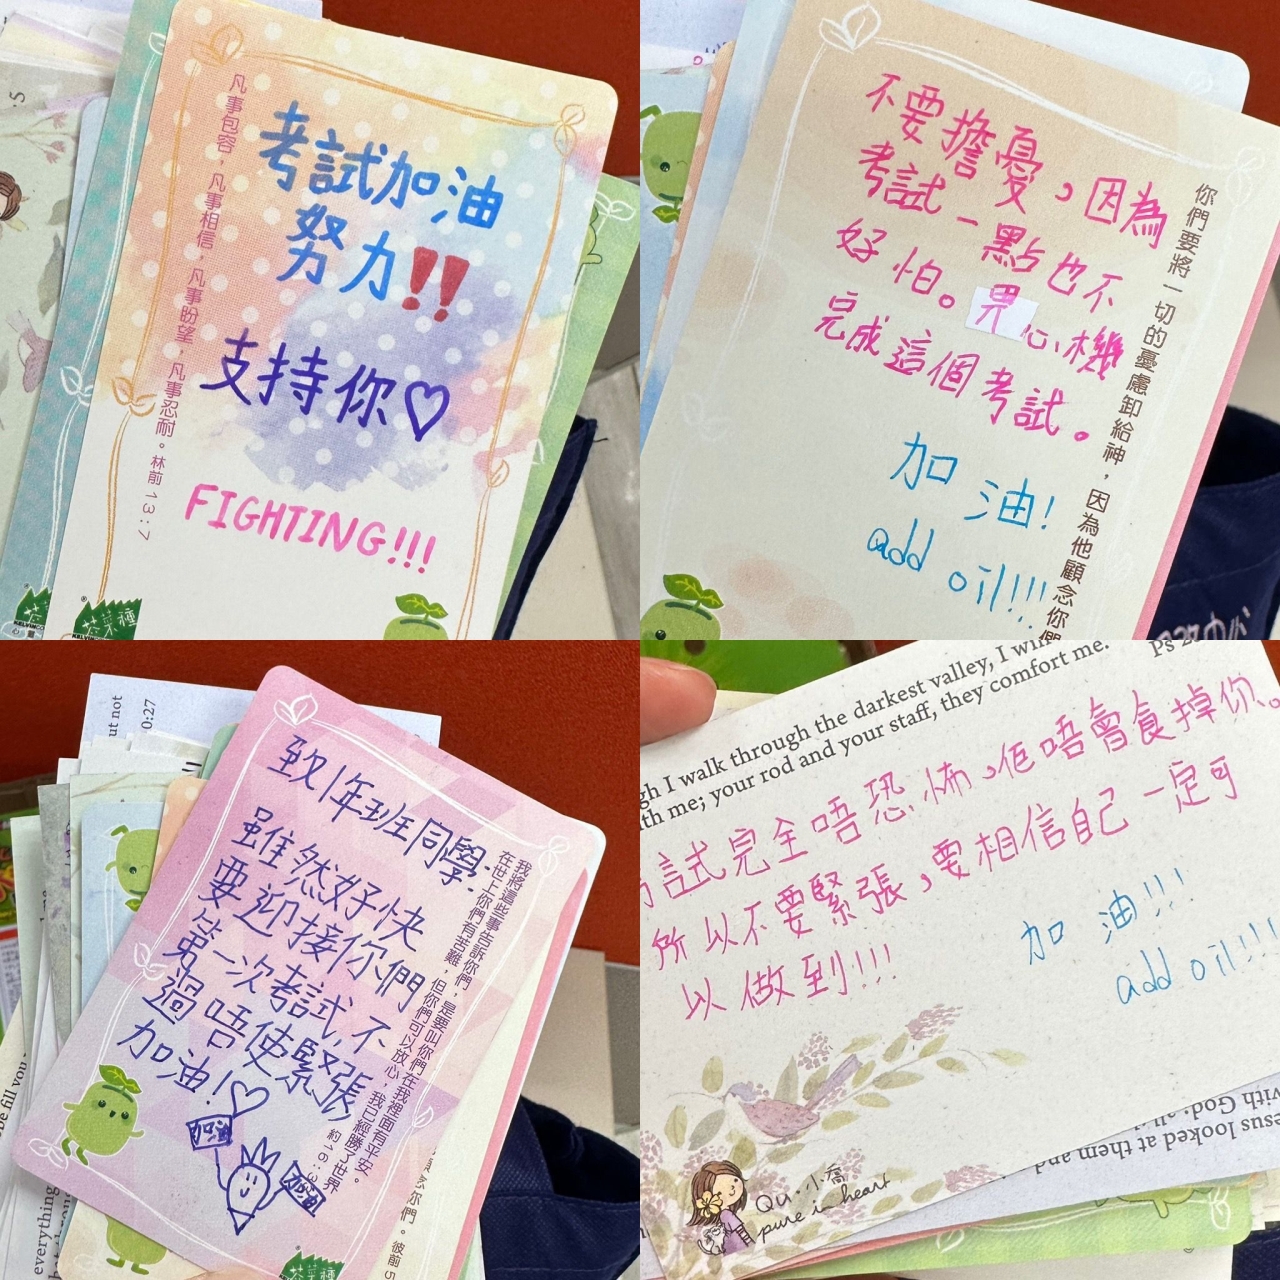 凡事包容，凡事相信，凡事盼望，凡事忍耐。林前 13:7
考試加油
努力!!
支持你♡
FIGHTING!!!
不要擔憂，因為
考試一點也不
好怕。畀心機
完成這個考試。
加油!
add oil!!!
你們要將一切的憂慮卸給神，因為他顧念你們
ut not
0:27
致1年班同學:
雖然好快
要迎接你們
第一次考試,不
過唔使緊張
加油!♡
加油
加油
我將這些事告訴你們，是要叫你們在我裡面有平安。
在世上你們有苦難，但你們可以放心，我已經勝了世界
約16:3
念你們。彼前5
be fill you
everything
gh I walk through the darkest valley, I wi
th me; your rod and your staff, they comfort me.
Ps 2
試完全唔恐怖，佢唔會食掉你。
所以不要緊張，要相信自己一定可
以做到!!!
加油!!!
add oil!!!
Qu·小喬
pure in heart
esus looked at them and
with God; al